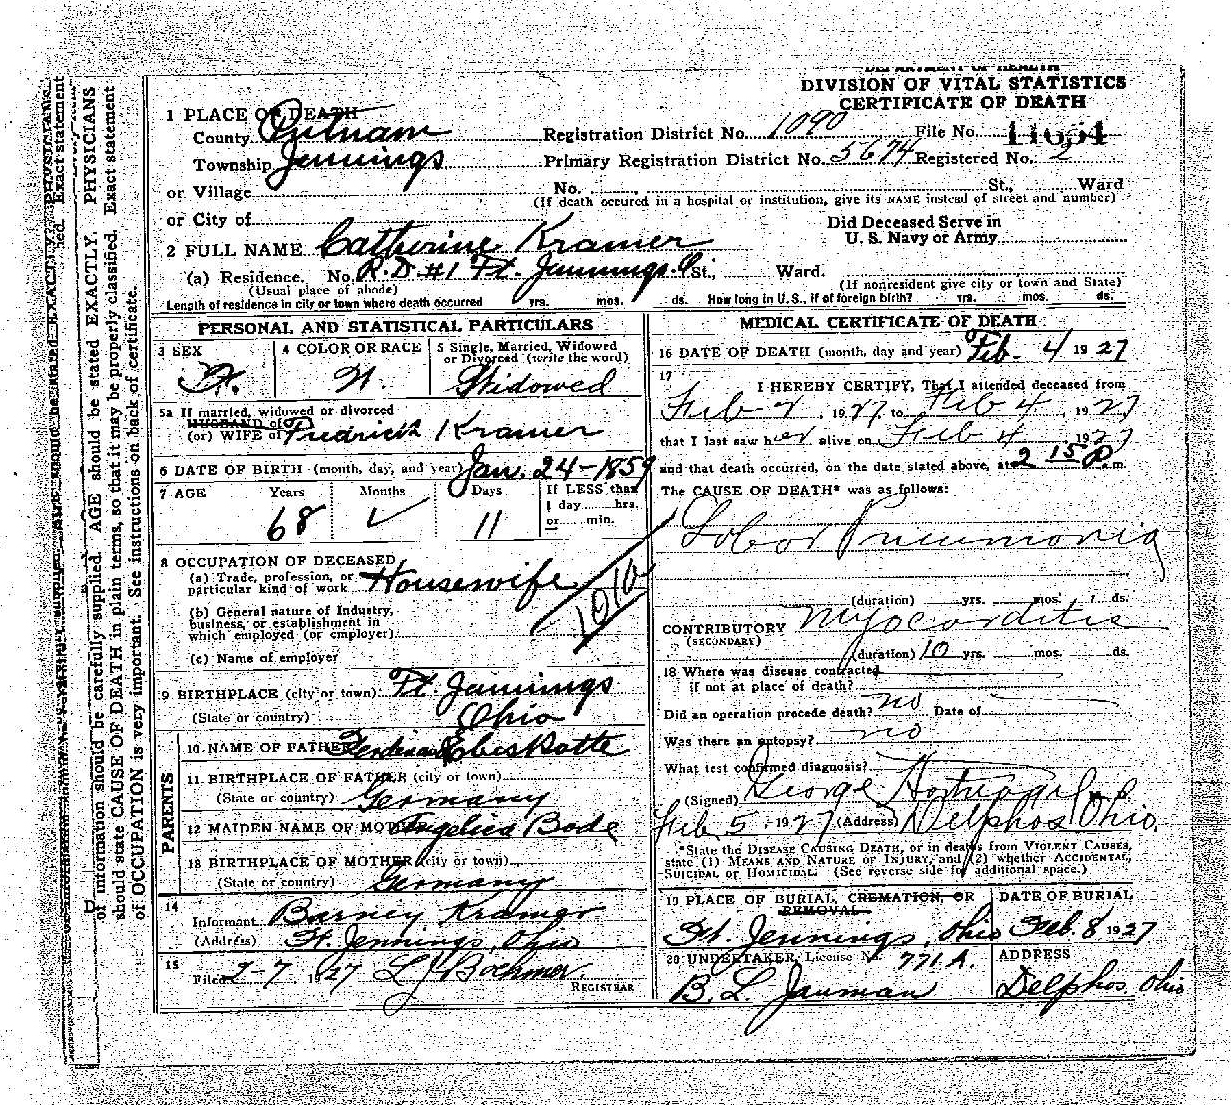 DIVISION OF VITAL STATISTICS
CERTIFICATE OF DEATH
1 PLACE OF DEATH
County Putnam Registration District No. 1090 File No.
Township Jennings Primary Registration District No. 5674 Registered No. 2
or Village No. St., Ward
(If death occured in a hospital or institution, give its NAME instead of street and number)
or City of Did Deceased Serve in
U. S. Navy or Army
2 FULL NAME Catherine Kramer
(a) Residence. No. R.D. #1 Ft. Jennings. O. St., Ward.
(Usual place of abode) (If nonresident give city or town and State)
Length of residence in city or town where death occurred yrs. mos. ds. How long in U.S., if of foreign birth? yrs. mos. ds.
PERSONAL AND STATISTICAL PARTICULARS
3 SEX 4 COLOR OR RACE 5 Single, Married, Widowed
or Divorced (write the word)
F. W. Widowed
5a If married, widowed or divorced
HUSBAND of
(or) WIFE of Fredrick Kramer
6 DATE OF BIRTH (month, day, and year) Jan. 24-1859
7 AGE Years Months Days If LESS than
1 day hrs.
or min.
68 11
8 OCCUPATION OF DECEASED
(a) Trade, profession, or
particular kind of work Housewife
(b) General nature of Industry,
business, or establishment in
which employed (or employer)
(c) Name of employer
1010
9 BIRTHPLACE (city or town) Ft. Jennings
(State or country) Ohio
PARENTS
10 NAME OF FATHER
11 BIRTHPLACE OF FATHER (city or town)
(State or country) Germany
12 MAIDEN NAME OF MOTHER Angelica Bode
13 BIRTHPLACE OF MOTHER (city or town)
(State or country) Germany
14
Informant Barney Kramer
(Address) Ft. Jennings, Ohio
15
Filed 2-7 1927 L J Boehmer
REGISTRAR
MEDICAL CERTIFICATE OF DEATH
16 DATE OF DEATH (month, day and year) Feb. 4 1927
17
I HEREBY CERTIFY, That I attended deceased from
Feb 2, 1927 to Feb 4, 1927
that I last saw her alive on Feb 4 1927
and that death occurred, on the date stated above, at 2 15 P.m.
The CAUSE OF DEATH* was as follows:
Lobar Pneumonia
(duration) yrs. mos. ds.
CONTRIBUTORY Myocarditis
(SECONDARY)
(duration) 10 yrs. mos. ds.
18 Where was disease contracted
if not at place of death?
Did an operation precede death? no Date of
Was there an autopsy? no
What test confirmed diagnosis?
(Signed) George
Feb 5, 1927 (Address) Delphos Ohio.
*State the DISEASE CAUSING DEATH, or in deaths from VIOLENT CAUSES,
state (1) MEANS AND NATURE OF INJURY, and (2) whether ACCIDENTAL,
SUICIDAL or HOMICIDAL. (See reverse side for additional space.)
19 PLACE OF BURIAL, CREMATION, OR
REMOVAL
DATE OF BURIAL
Ft. Jennings, Ohio Feb. 8 1927
20 UNDERTAKER, License No. 771 A. ADDRESS
B. L. Jauman Delphos, Ohio
of information should be carefully supplied. AGE should be stated EXACTLY. PHYSICIANS
should state CAUSE OF DEATH in plain terms, so that it may be properly classified. Exact statement
of OCCUPATION is very important. See instructions on back of certificate.